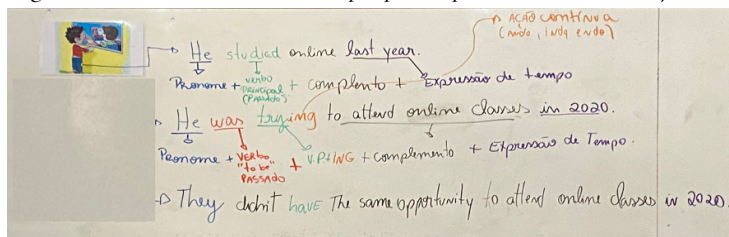 AÇÃO contínua
(ando, indo, endo)
He studied online last year.
Pronome + verbo principal (passado) + complento + Expressão de tempo
He was trying to attend online classes in 2020.
Pronome + verbo "to be" passado + V.P + ING + complemento + Expressão de Tempo.
They didn't have The same opportunity to attend online classes in 2020.